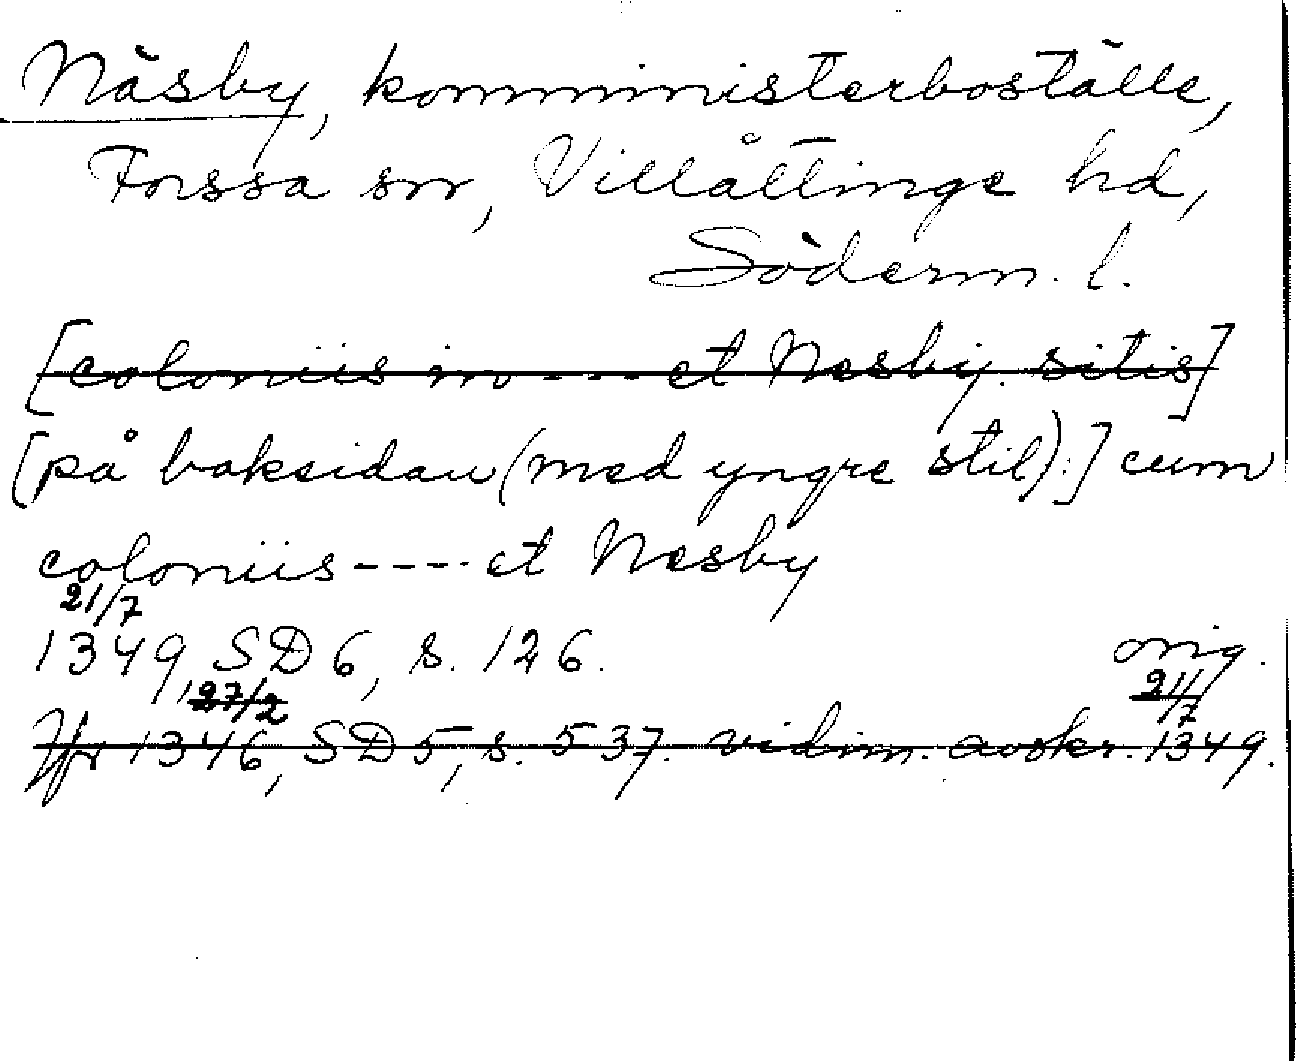 Näsby, komministerboställe,
Forssa sn, Villåttinge hd,
Söderm. l.
[coloniis in --- et Nesby sitis]
[på baksidan (med yngre stil):] cum
coloniis ---- et Nesby
21/7
1349, SD 6, s. 126. orig.
27/2 21/7
Jfr 1346, SD 5, s. 537. vidim. avskr. 1349.